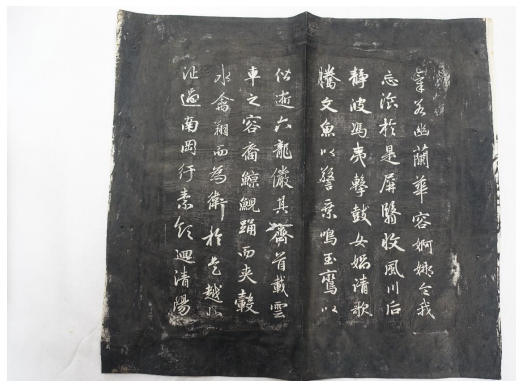 氣若幽蘭華容婀娜令我
忘湌於是屏翳收風川后
靜波馮夷擊鼓女媧清歌
騰文魚以警乘鳴玉鸞以
偕逝六龍儼其齊首載雲
車之容裔鯨鯢踊而夾轂
水禽翔而為衛於是越北
沚過南岡紆素領迴清陽